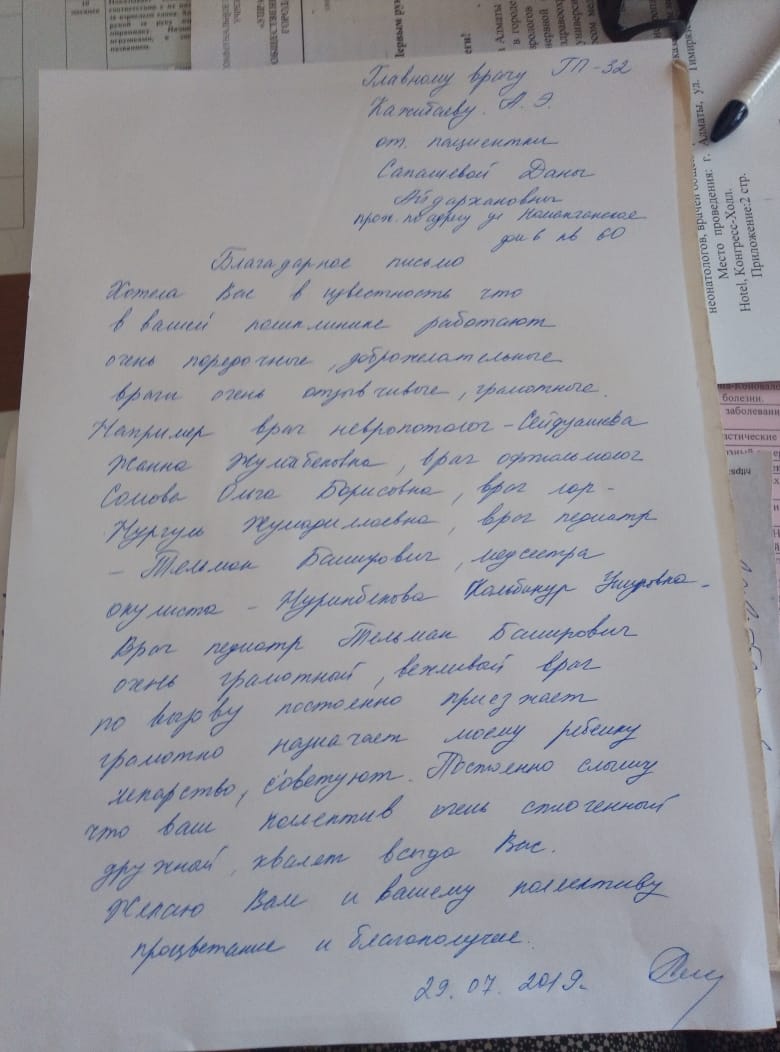 Главному врачу ГП-32
Кажитаеву. А. Э.
от. пациентки
Сапашевой Даны
Айдархановны
прож. по адресу ул Наманганское
дом 6 кв 60
Благадарное письмо
Хотела Вас в известность что
в вашей поликлинике работают
очень порядочные, доброжелательные
врачи очень отзывчивые, грамотные.
Например врач невропотолог - Сейдуашева
Жанна Жумабековна, врач офтальмолог
Сомова Ольга Борисовна, врач лор -
Нургуль Жумадиллаевна, врач педиатр
- Тельман Баширович, медсестра
окулиста - Нуринбекова Калбинур
Врач педиатр Тельман Баширович
очень грамотный, вежливой врач
по вызову постоенно приезжает
грамотно назначает моему ребенку
лекарство, советуют. Постоенно слышу
что ваш коллектив очень сплоченный
дружной, хвалят всегда Вас.
Желаю Вам и вашему коллективу
процветание и благополучие.
29. 07. 2019г.
неонатологов, врачей
Место проведения: г. Алматы, ул. Тимирязева
Hotel, Конгресс-Холл.
Приложение:2 стр.
болезни.